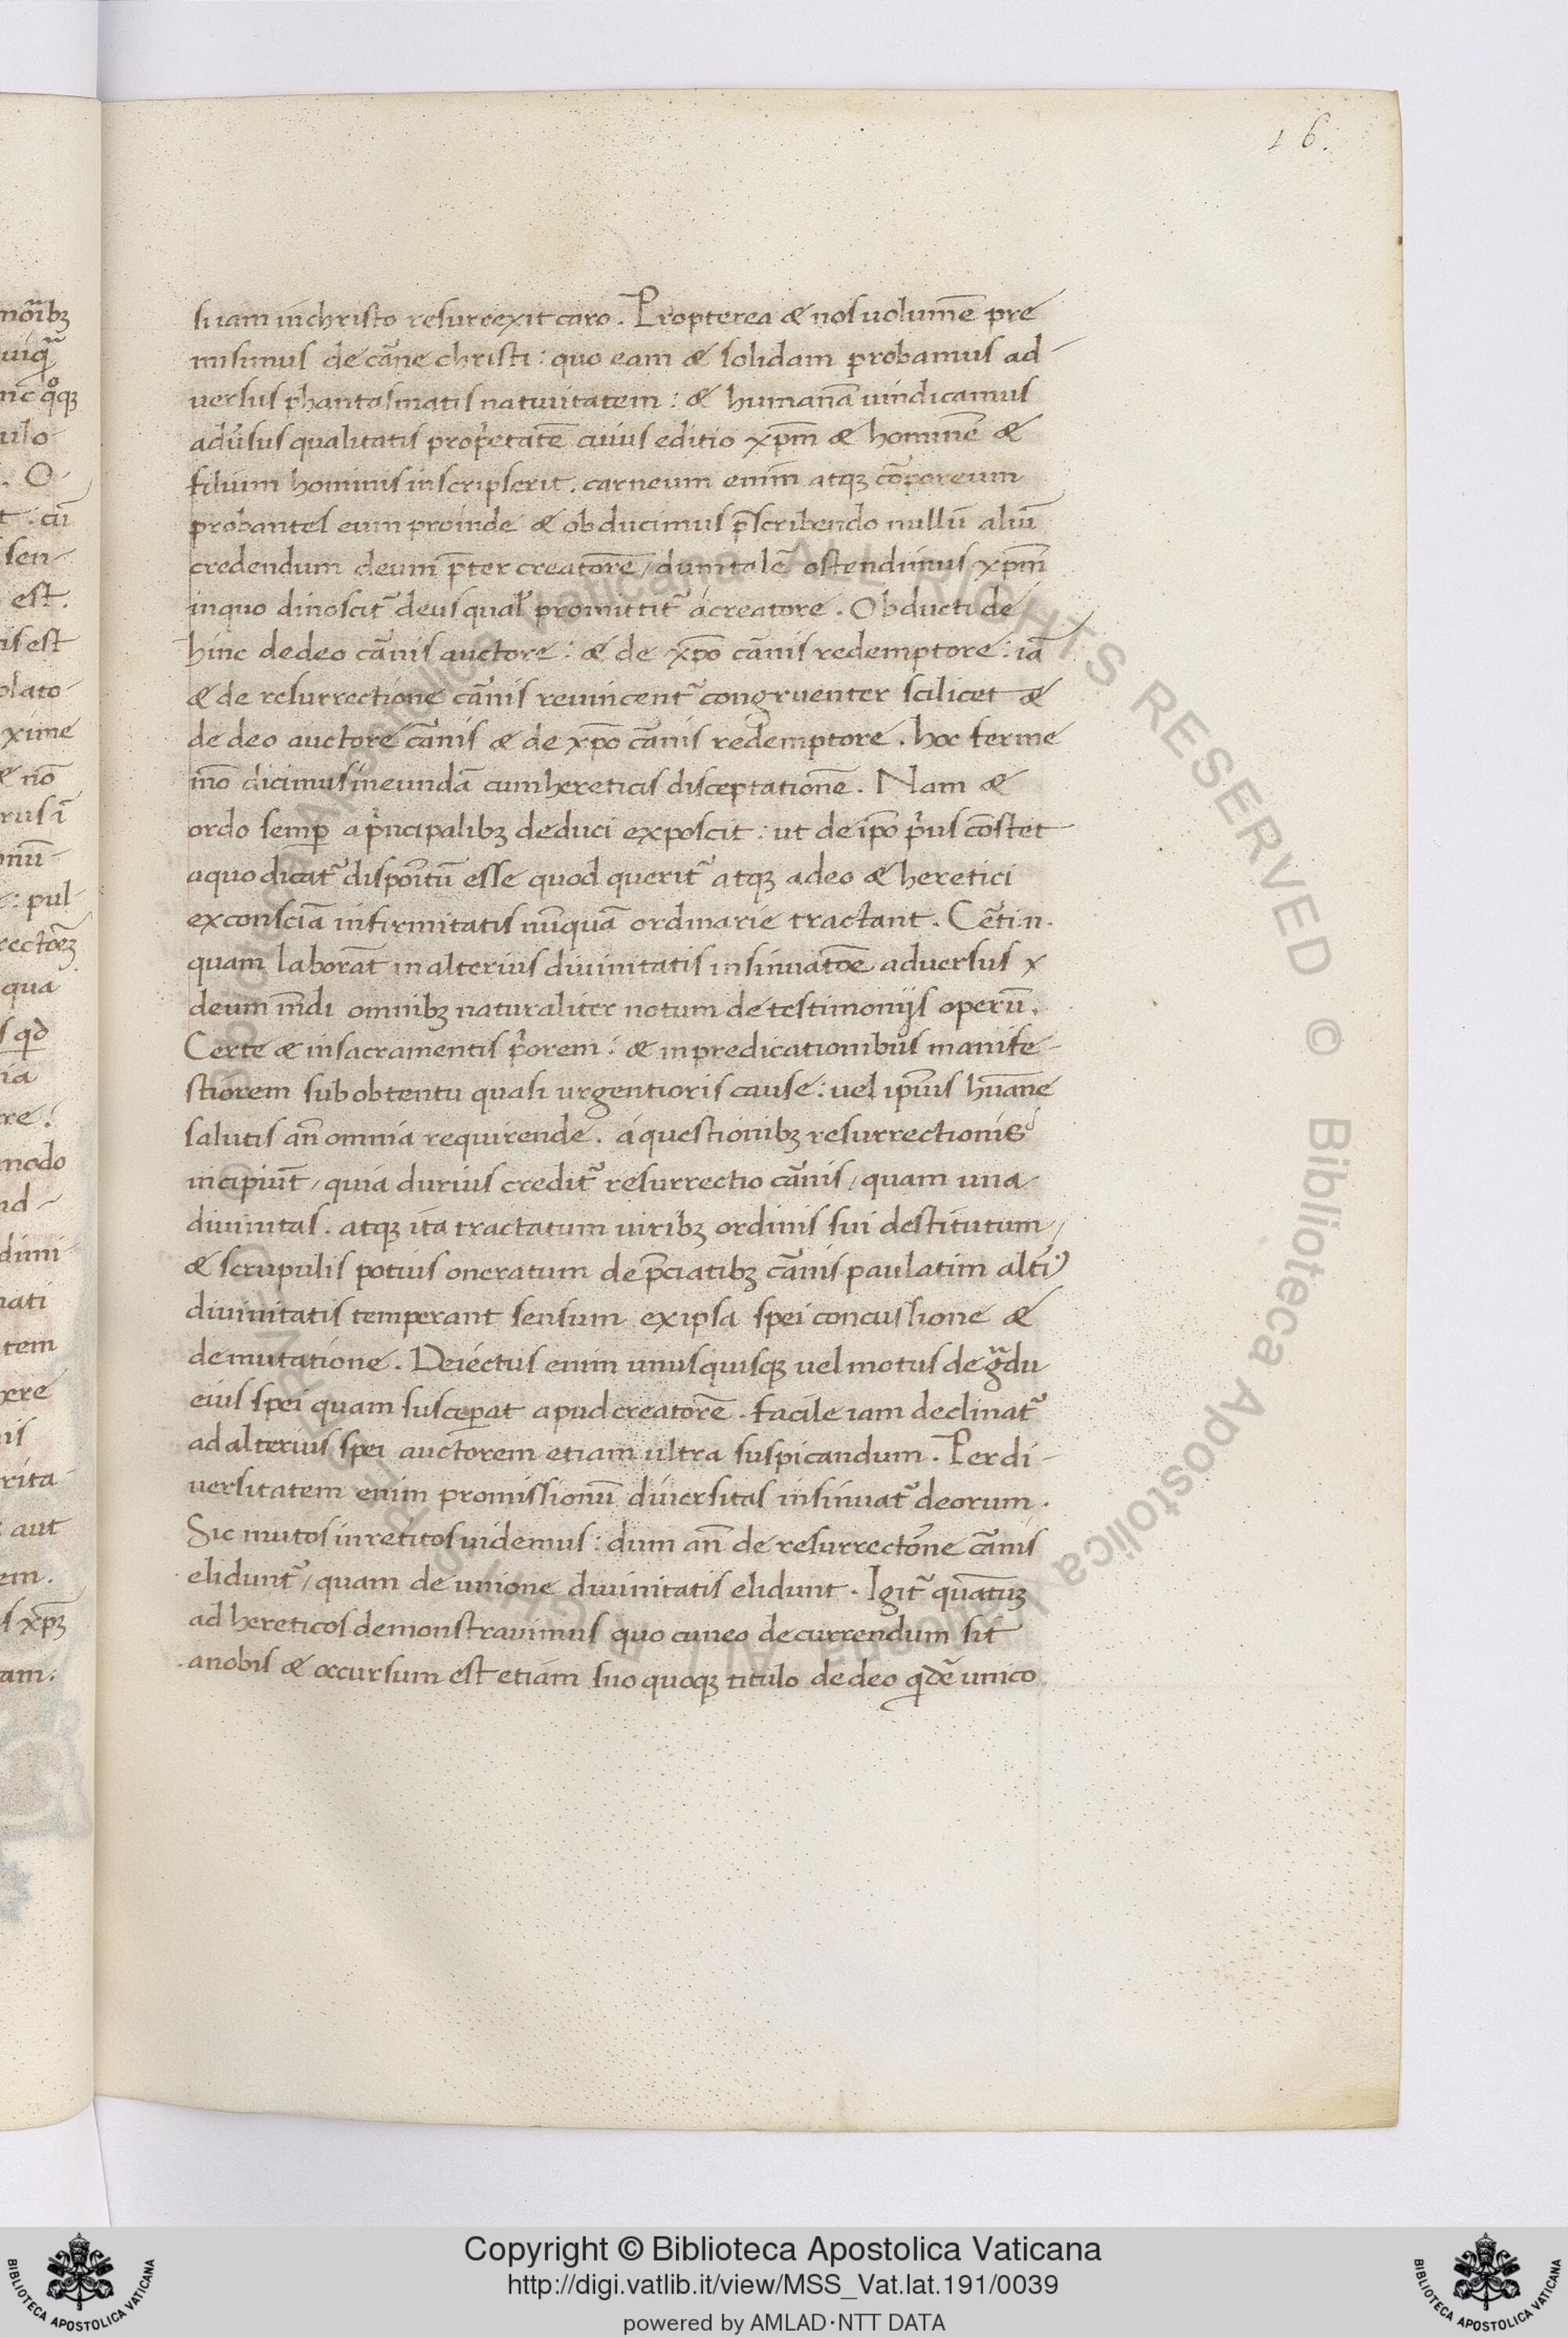 16.
suam in christo resurrexit caro. Propterea & nos volumē pre
misimus de cāne christi: quo eam & solidam probamus ad-
versus phantasmatis natiuitatem: & humanā uindicamus
adūsus qualitatis propˈetatē cuius editio xp̄m & hominē &
filium hominis inscripserit. carneum enim atqꝫ cōrporeum
probantes eum proinde & obducimus p̄scribendo nullū aliū
credendum deum p̄ter creatorē, dum talē ostendimus xp̄m
in quo dinoscit᷑ deus qual' promittit᷑ a creatore. Obducti de
hinc de deo cānis auctore: & de xp̄o cānis redemptore: iā
& de resurrectione cānis reuincent᷑ congruenter scilicet &
de deo auctore cānis & de xp̄o cānis redemptore. hoc ferme
mō dicimus ineundā cum hereticis disceptationē. Nam &
ordo semꝑ a pˈncipalibꝫ deduci exposcit: ut de ip̄o pˈus cōstet
a quo dicat᷑ dispoītū esse quod querit᷑ atqꝫ adeo & heretici
ex consciā infirmitatis nūquā ordinarie tractant. Cēti.n.
quam laborāt in alterius diuinitatis insinuatōe aduersus x
deum mūdi omnibꝫ naturaliter notum de testimonijs operū.
Certe & in sacramentis pˈorem: & in predicationibus manife-
stiorem sub obtentu quasi urgentioris cause: vel ip̄ius hūane
salutis an̄ omnia requirende. a questionibꝫ resurrectionis
incipiūt, quia durius credit᷑ resurrectio cānis, quam una
diuinitas. atqꝫ ita tractatum uiribꝫ ordinis sui destitutum,
& scrupulis potius oneratum dep̄ciatibꝫ cānis paulatim altī
diuinitatis temperant sensum ex ipsa spei concussione &
demutatione. Deiectus enim unusquisqꝫ vel motus de gᷓdu
eius spei quam susceꝑat apud creatorē. facile iam declinat᷑
ad alterius spei auctorem etiam ultra suspicandum. Per di-
uersitatem enim promissionū diuersitas insinuat᷑ deorum.
Sic mutos inretitos uidemus: dum an̄ de resurrectōne cānis
elidunt᷑, quam de unione diuinitatis elidunt. Igit᷑ quātuꝫ
ad hereticos demonstrauimus quo cuneo decurrendum sit
a nobis & occursum est etiam suo quoqꝫ titulo de deo qˈdē unico
Copyright © Biblioteca Apostolica Vaticana
http://digi.vatlib.it/view/MSS_Vat.lat.191/0039
powered by AMLAD·NTT DATA
BIBLIOTECA APOSTOLICA VATICANA
BIBLIOTECA APOSTOLICA VATICANA